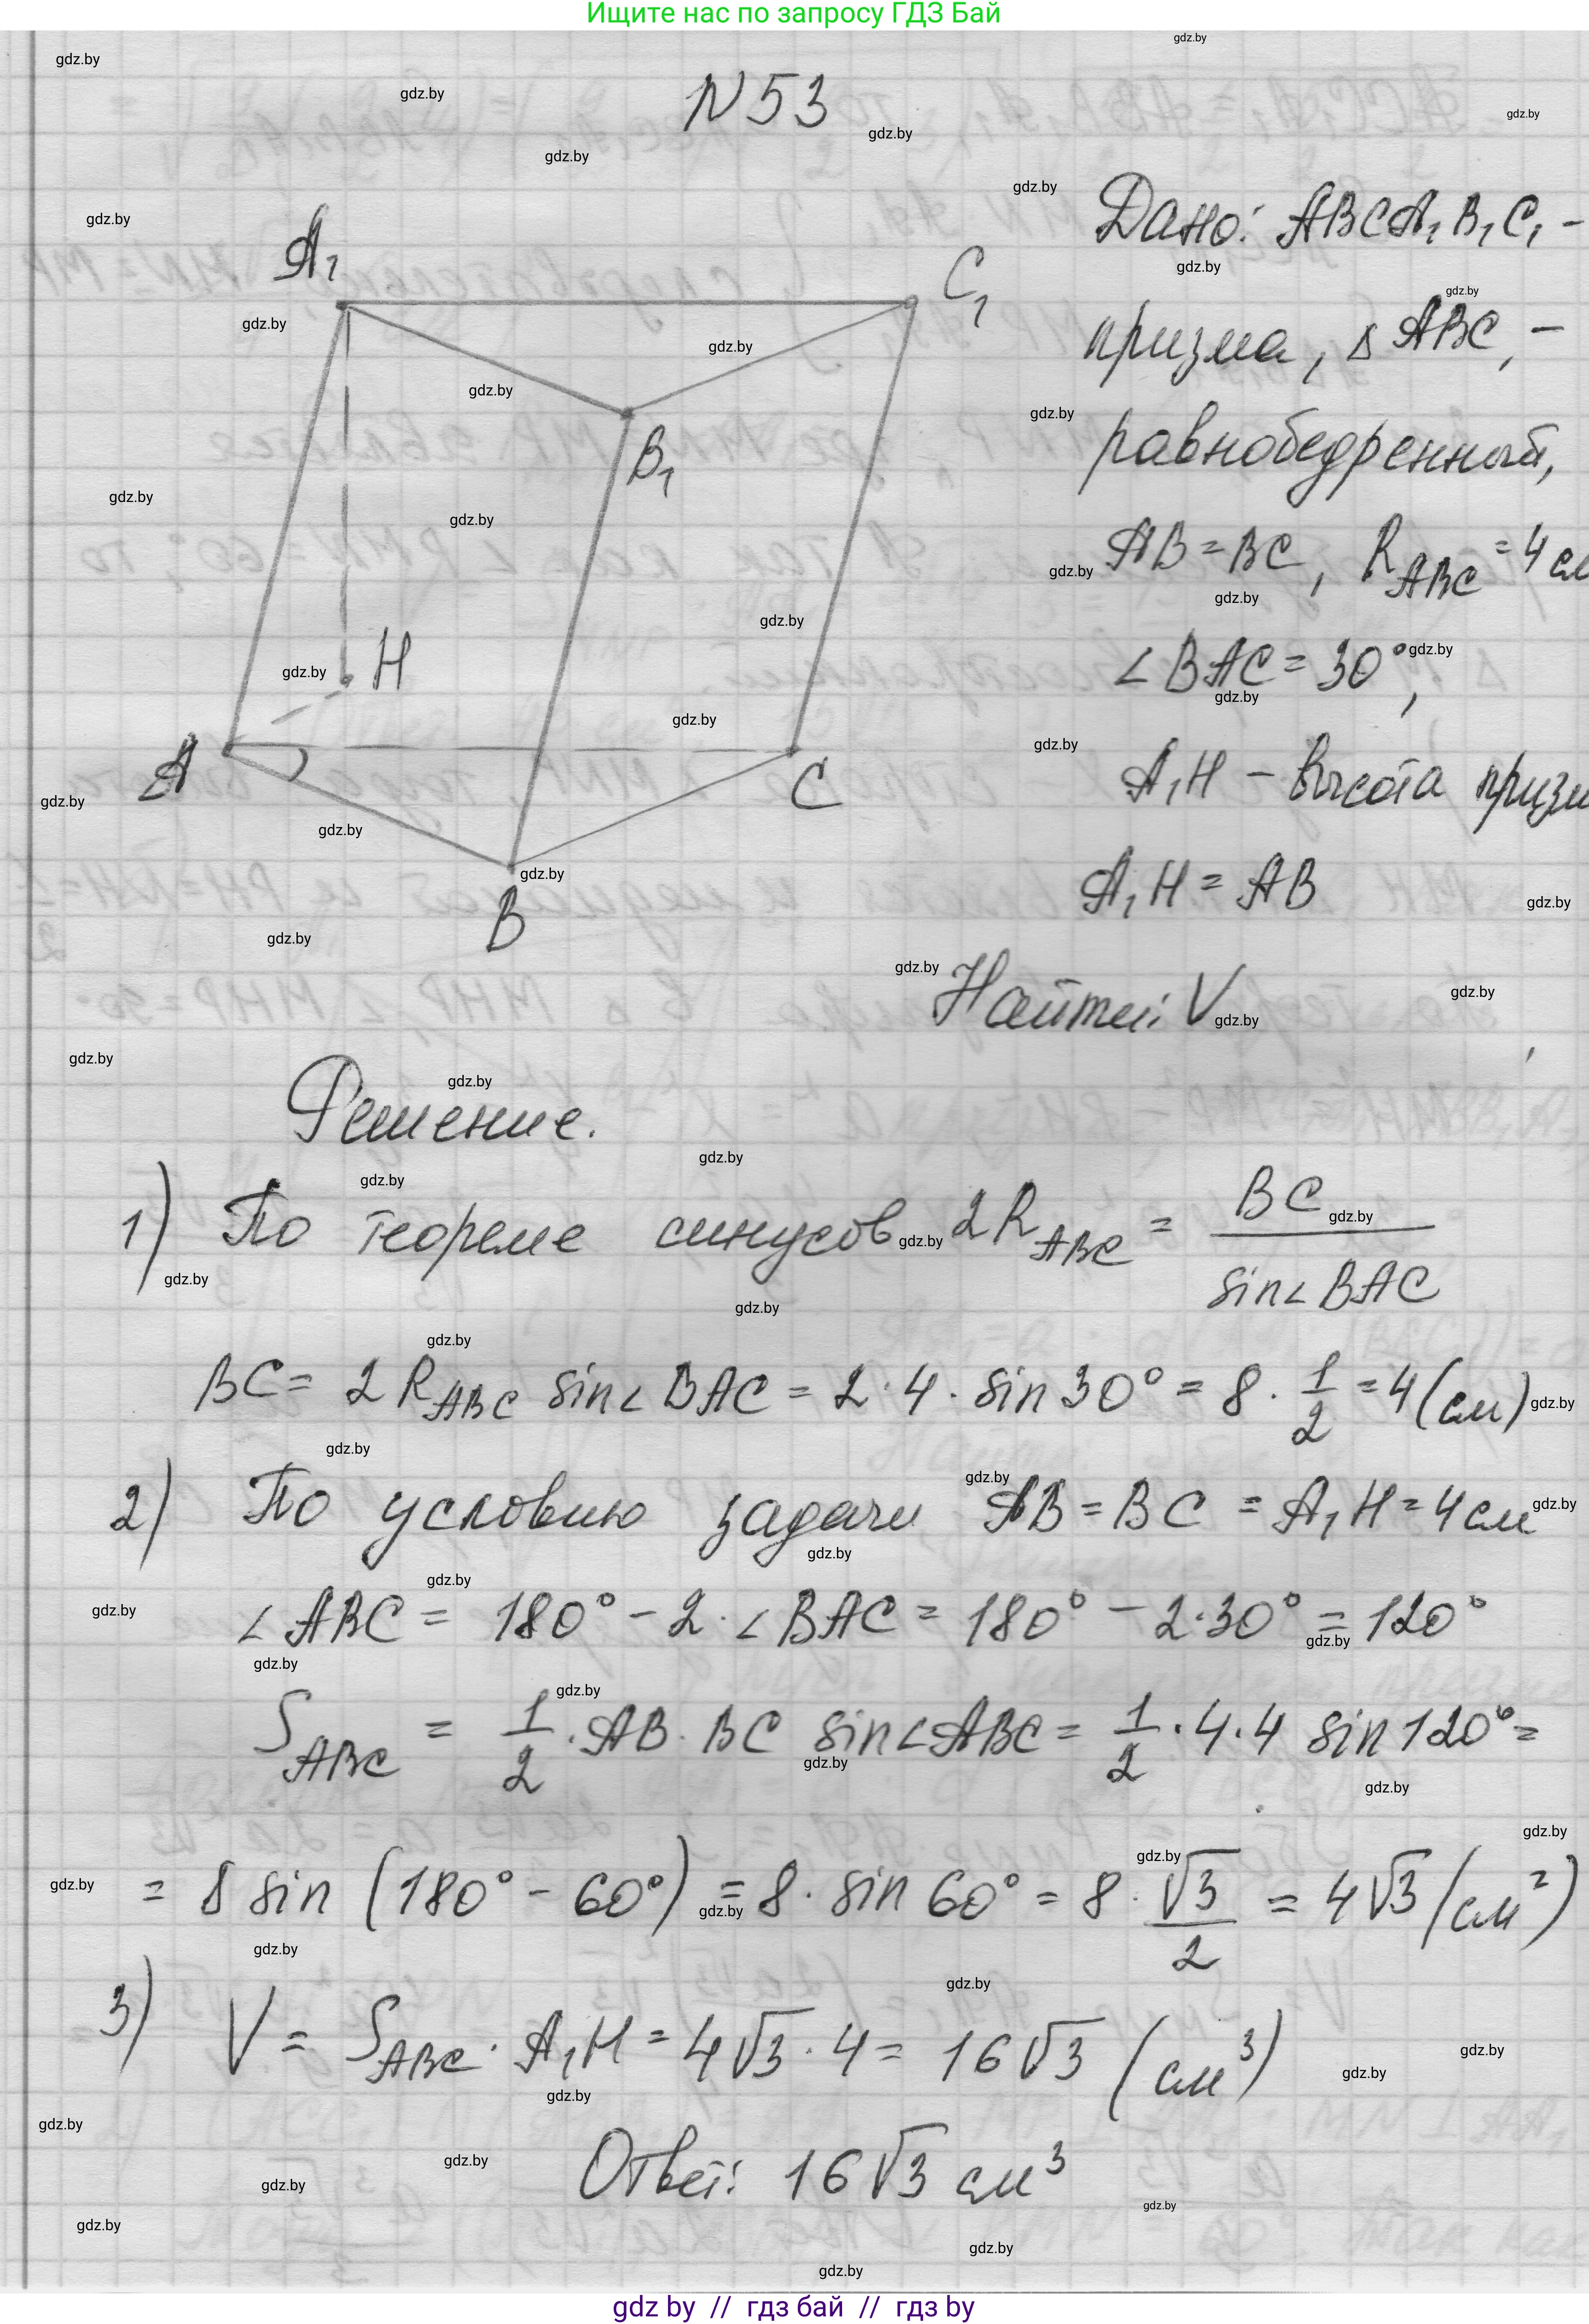 Ищите нас по запросу ГДЗ Бай
N 53
A₁
C₁
B₁
H
A
C
B
Дано: ABCA₁B₁C₁ –
призма, △ ABC, –
равнобедренный,
AB = BC, R_ABC = 4 см
∠BAC = 30°,
A₁H – высота призм
A₁H = AB
Найти: V
Решение.
1) По теореме синусов 2R_ABC = BC / sin∠BAC
BC = 2 R_ABC sin∠BAC = 2 · 4 · sin 30° = 8 · 1/2 = 4 (см)
2) По условию задачи AB = BC = A₁H = 4 см
∠ABC = 180° – 2 · ∠BAC = 180° – 2·30° = 120°
S_ABC = 1/2 · AB · BC sin∠ABC = 1/2 · 4 · 4 sin 120° =
= 8 sin (180° – 60°) = 8 · sin 60° = 8 · √3/2 = 4√3 (см²)
3) V = S_ABC · A₁H = 4√3 · 4 = 16√3 (см³)
Ответ: 16√3 см³
gdz by // гдз бай // гдз by